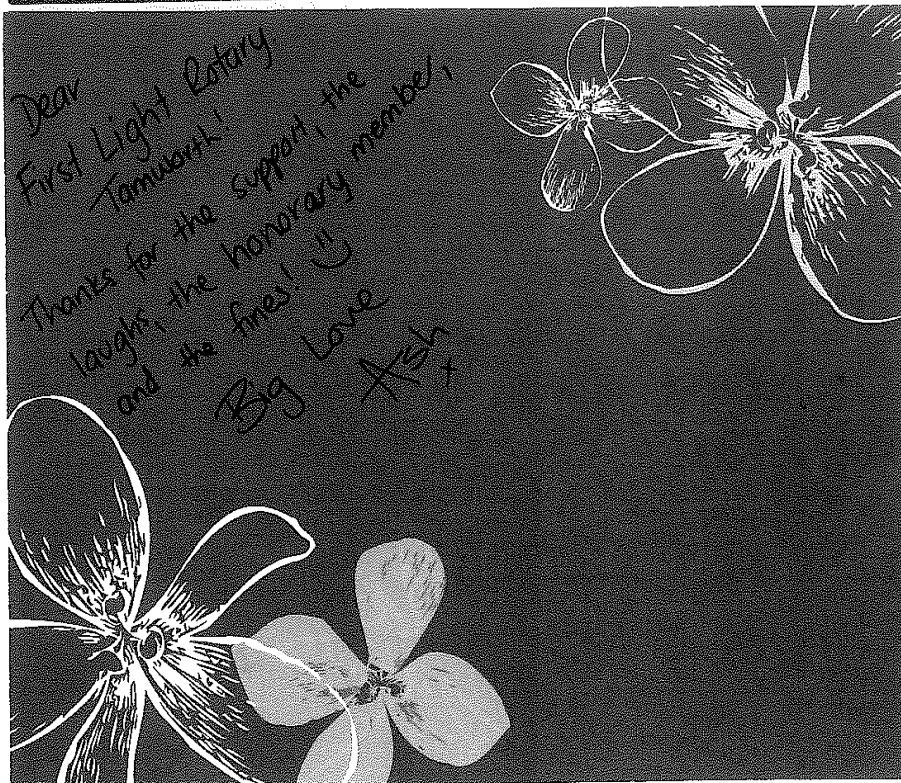 Dear
First Light Rotary
Tamworth!
Thanks for the support, the
laughs, the honorary member,
and the fines! :)
Big Love
Ash
x